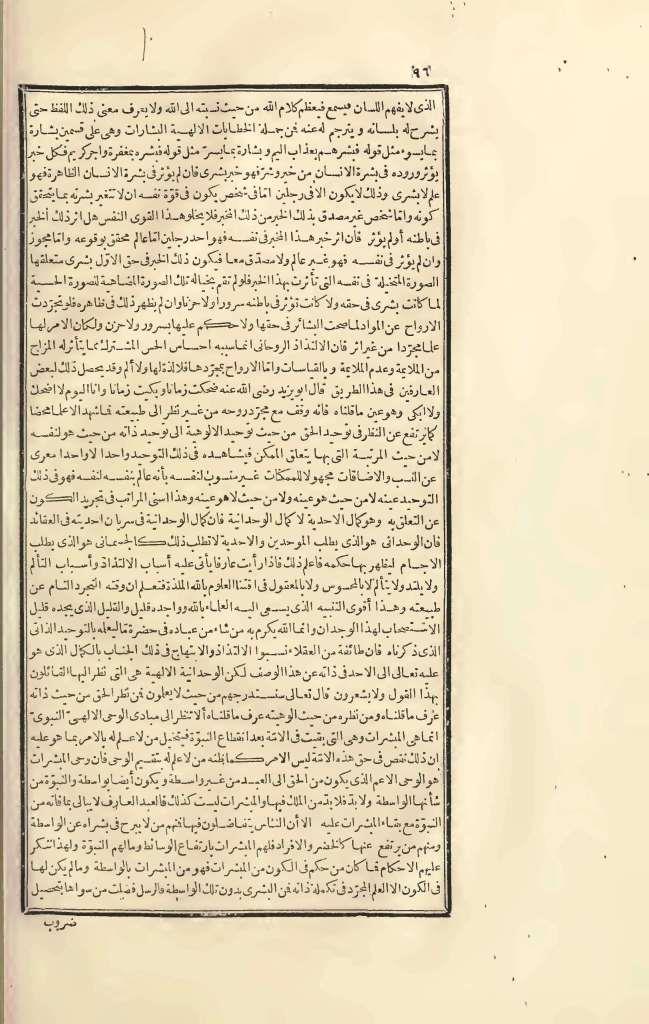 ٩٦
الذى لا يفهم اللسان فيسمع فيعظم كلام الله من حيث نسبته الى الله ولا يعرف معنى ذلك اللفظ حتى
يشرح له بلسانه و يترجم له عنه فمن جملة الخطابات الالهية البشارات وهى على قسمين بشارة
بما يسوء مثل قوله فبشرهم بعذاب اليم وبشارة بما يسر مثل قوله فبشره بمغفرة واجر كريم فكل خبر
يؤثر وروده فى بشرة الانسان من خير وشر فهو خبر بشرى فان لم يؤثر فى بشرة الانسان الظاهرة فهو
علم لا بشرى وذلك لا يكون الا فى رجلين اما فى شخص يكون فى قوة نفسه ان لا تتغير بشرته بما يتحقق
كونه واما شخص غير مصدق بذلك الخبر من ذلك المخبر فلا يخلو هذا القوى النفس هل اثر ذلك الخبر
فى باطنه أو لم يؤثر فان اثر خبر هذا المخبر فى نفسه فهو احد رجلين اما عالم محقق بوقوعه واما مجوز
وان لم يؤثر فى نفسه فهو غير عالم ولا مصدق معا فيكون ذلك الخبر فى حق الاول بشرى متعلقها
الصورة المتخيلة فى نفسه التى تأثرت بهذا الخبر فلو لم تقم بخياله تلك الصورة المضاهية للصورة الحسية
لما كانت بشرى فى حقه ولا كانت تؤثر فى باطنه سرورا ولا حزنا وان لم يظهر ذلك فى ظاهره فلو تجردت
الارواح عن المواد لما صحت البشائر فى حقها ولا حكم عليها بسرور ولا حزن ولكان الامر لها
علما مجردا من غير اثر فان الالتذاذ الروحانى انما سببه احساس الحس المشترك بما يتأثر له المزاج
من الملايمة وعدم الملايمة و بالقياسات واما الارواح بمجردها فلا لذة لها ولا ألم وقد يحصل ذلك لبعض
العارفين فى هذا الطريق قال ابو يزيد رضى الله عنه ضحكت زمانا وبكيت زمانا وانا اليوم لا اضحك
ولا ابكى وهو عين ما قلناه فانه وقف مع مجرد روحه من غير نظر الى طبيعته فما شهد الا علما محضا
كما يرتفع عن النظر فى توحيد الحق من حيث توحيد الالوهية الى توحيد ذاته من حيث هو لنفسه
لا من حيث المرتبة التى بها يتعلق الممكن فيشاهده فى ذلك التوحيد واحدا لا واحدا معرى
عن النسب والاضافات مجهولا للممكنات غير منسوب لنفسه بأنه عالم بنفسه لنفسه فهو فى ذلك
التوحيد عينه لا من حيث هو عينه ولا من حيث لا هو عينه وهذا اسنى المراتب فى تجريد الكون
عن التعلق به وهو كمال الاحدية لا كمال الوحدانية فان كمال الوحدانية فى سريان احديته فى العقائد
فان الوحدانى هو الذى يطلب الموحدين والاحدية لا تطلب ذلك كالجسمانى هو الذى يطلب
الاجسام ليظهر بها حكمه فاعلم ذلك فاذا رأيت عارفا يأتى عليه أسباب الالتذاذ وأسباب التألم
ولا يلتذ ولا يتألم لا بالمحسوس ولا بالمعقول فى اقتناء العلوم بالله الملذة فتعلم ان وقته التجرد التام عن
طبيعته وهذا أقوى التشبه الذى يسعى اليه العلماء بالله وواجده قليل والقليل الذى يجده قليل
الاستصحاب لهذا الوجدان وانما الله يكرم به من شاء من عباده فى حضرة ما ليعلمه بالتوحيد الذاتى
الذى ذكرناه فان طائفة من العقلاء نسبوا الالتذاذ والابتهاج فى ذلك الجناب بالكمال الذى هو
عليه تعالى الى الاحد فى ذاته عن هذا الوصف لكن الوحدانية الالهية هى التى نظر اليها القائلون
بهذا القول ولا يشعرون قال تعالى سنستدرجهم من حيث لا يعلمون فمن نظر الحق من حيث ذاته
عرف ما قلناه ومن نظره من حيث الوهيته عرف ما قلناه ألا تنظر الى مبادى الوحى الالهى النبوى
انما هى المبشرات وهى التى بقيت فى الامة بعد انقطاع النبوة فيتخيل من لا علم له بالامر بما هو عليه
ان ذلك نقص فى حق هذه الامة ليس الامر كما يظنه من لا علم له بتقسيم الوحى فان وحى المبشرات
هو الوحى الاعم الذى يكون من الحق الى العبد من غير واسطة ويكون أيضا بواسطة والنبوة من
شأنها الواسطة ولا بد فلا بد من الملك فيها والمبشرات ليست كذلك فالعبد العارف لا يبالى بما فاته من
النبوة مع بقاء المبشرات عليه الا أن الناس يتفاضلون فيها فمنهم من لا يبرح فى بشراه عن الواسطة
ومنهم من يرتفع عنها كالخضر والافراد فلهم المبشرات بارتفاع الوسائط وما لهم النبوة ولهذا تنكر
عليهم الاحكام فما كان من حكم فى الكون من المبشرات فهو من المبشرات بالواسطة وما لم يكن لها
فى الكون الا العلم المجرد فى تكملة ذاته فمن البشرى بدون تلك الواسطة فالرسل فضلت من سواها بتحصيل
ضروب